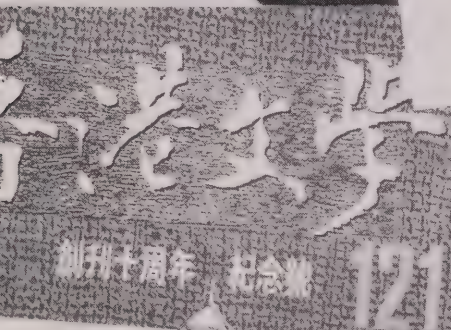 香港文学
創刊十周年 紀念號 121